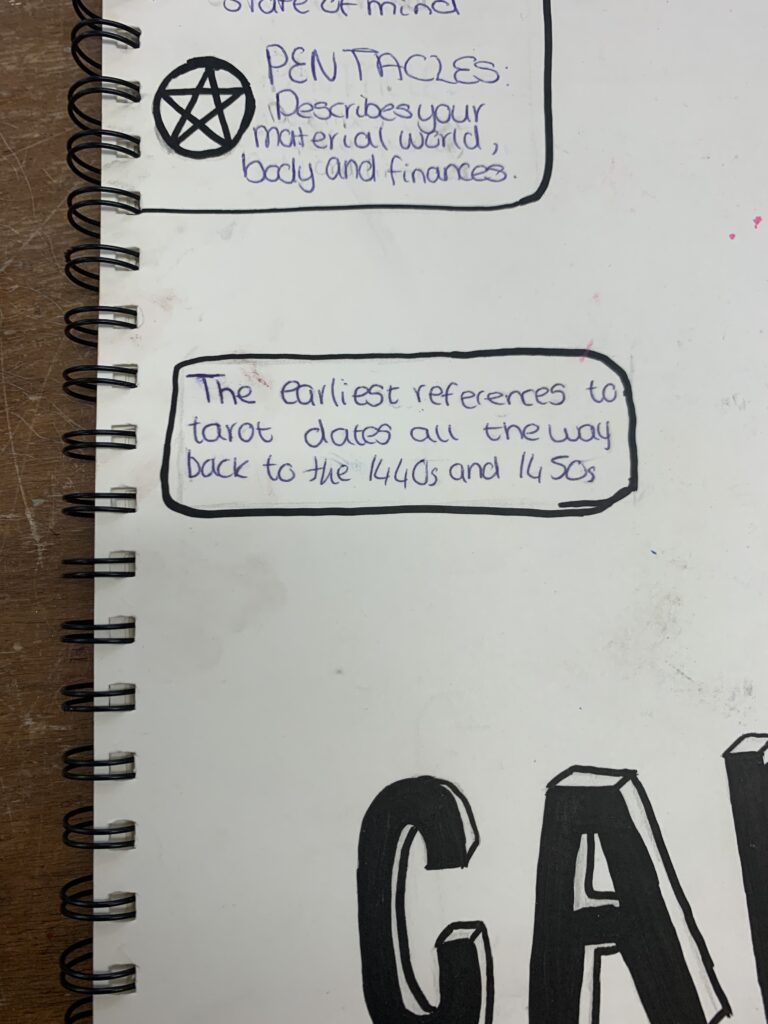 state of mind
PENTACLES:
Describes your
material world,
body and finances.
The earliest references to
tarot dates all the way
back to the 1440s and 1450s
CA